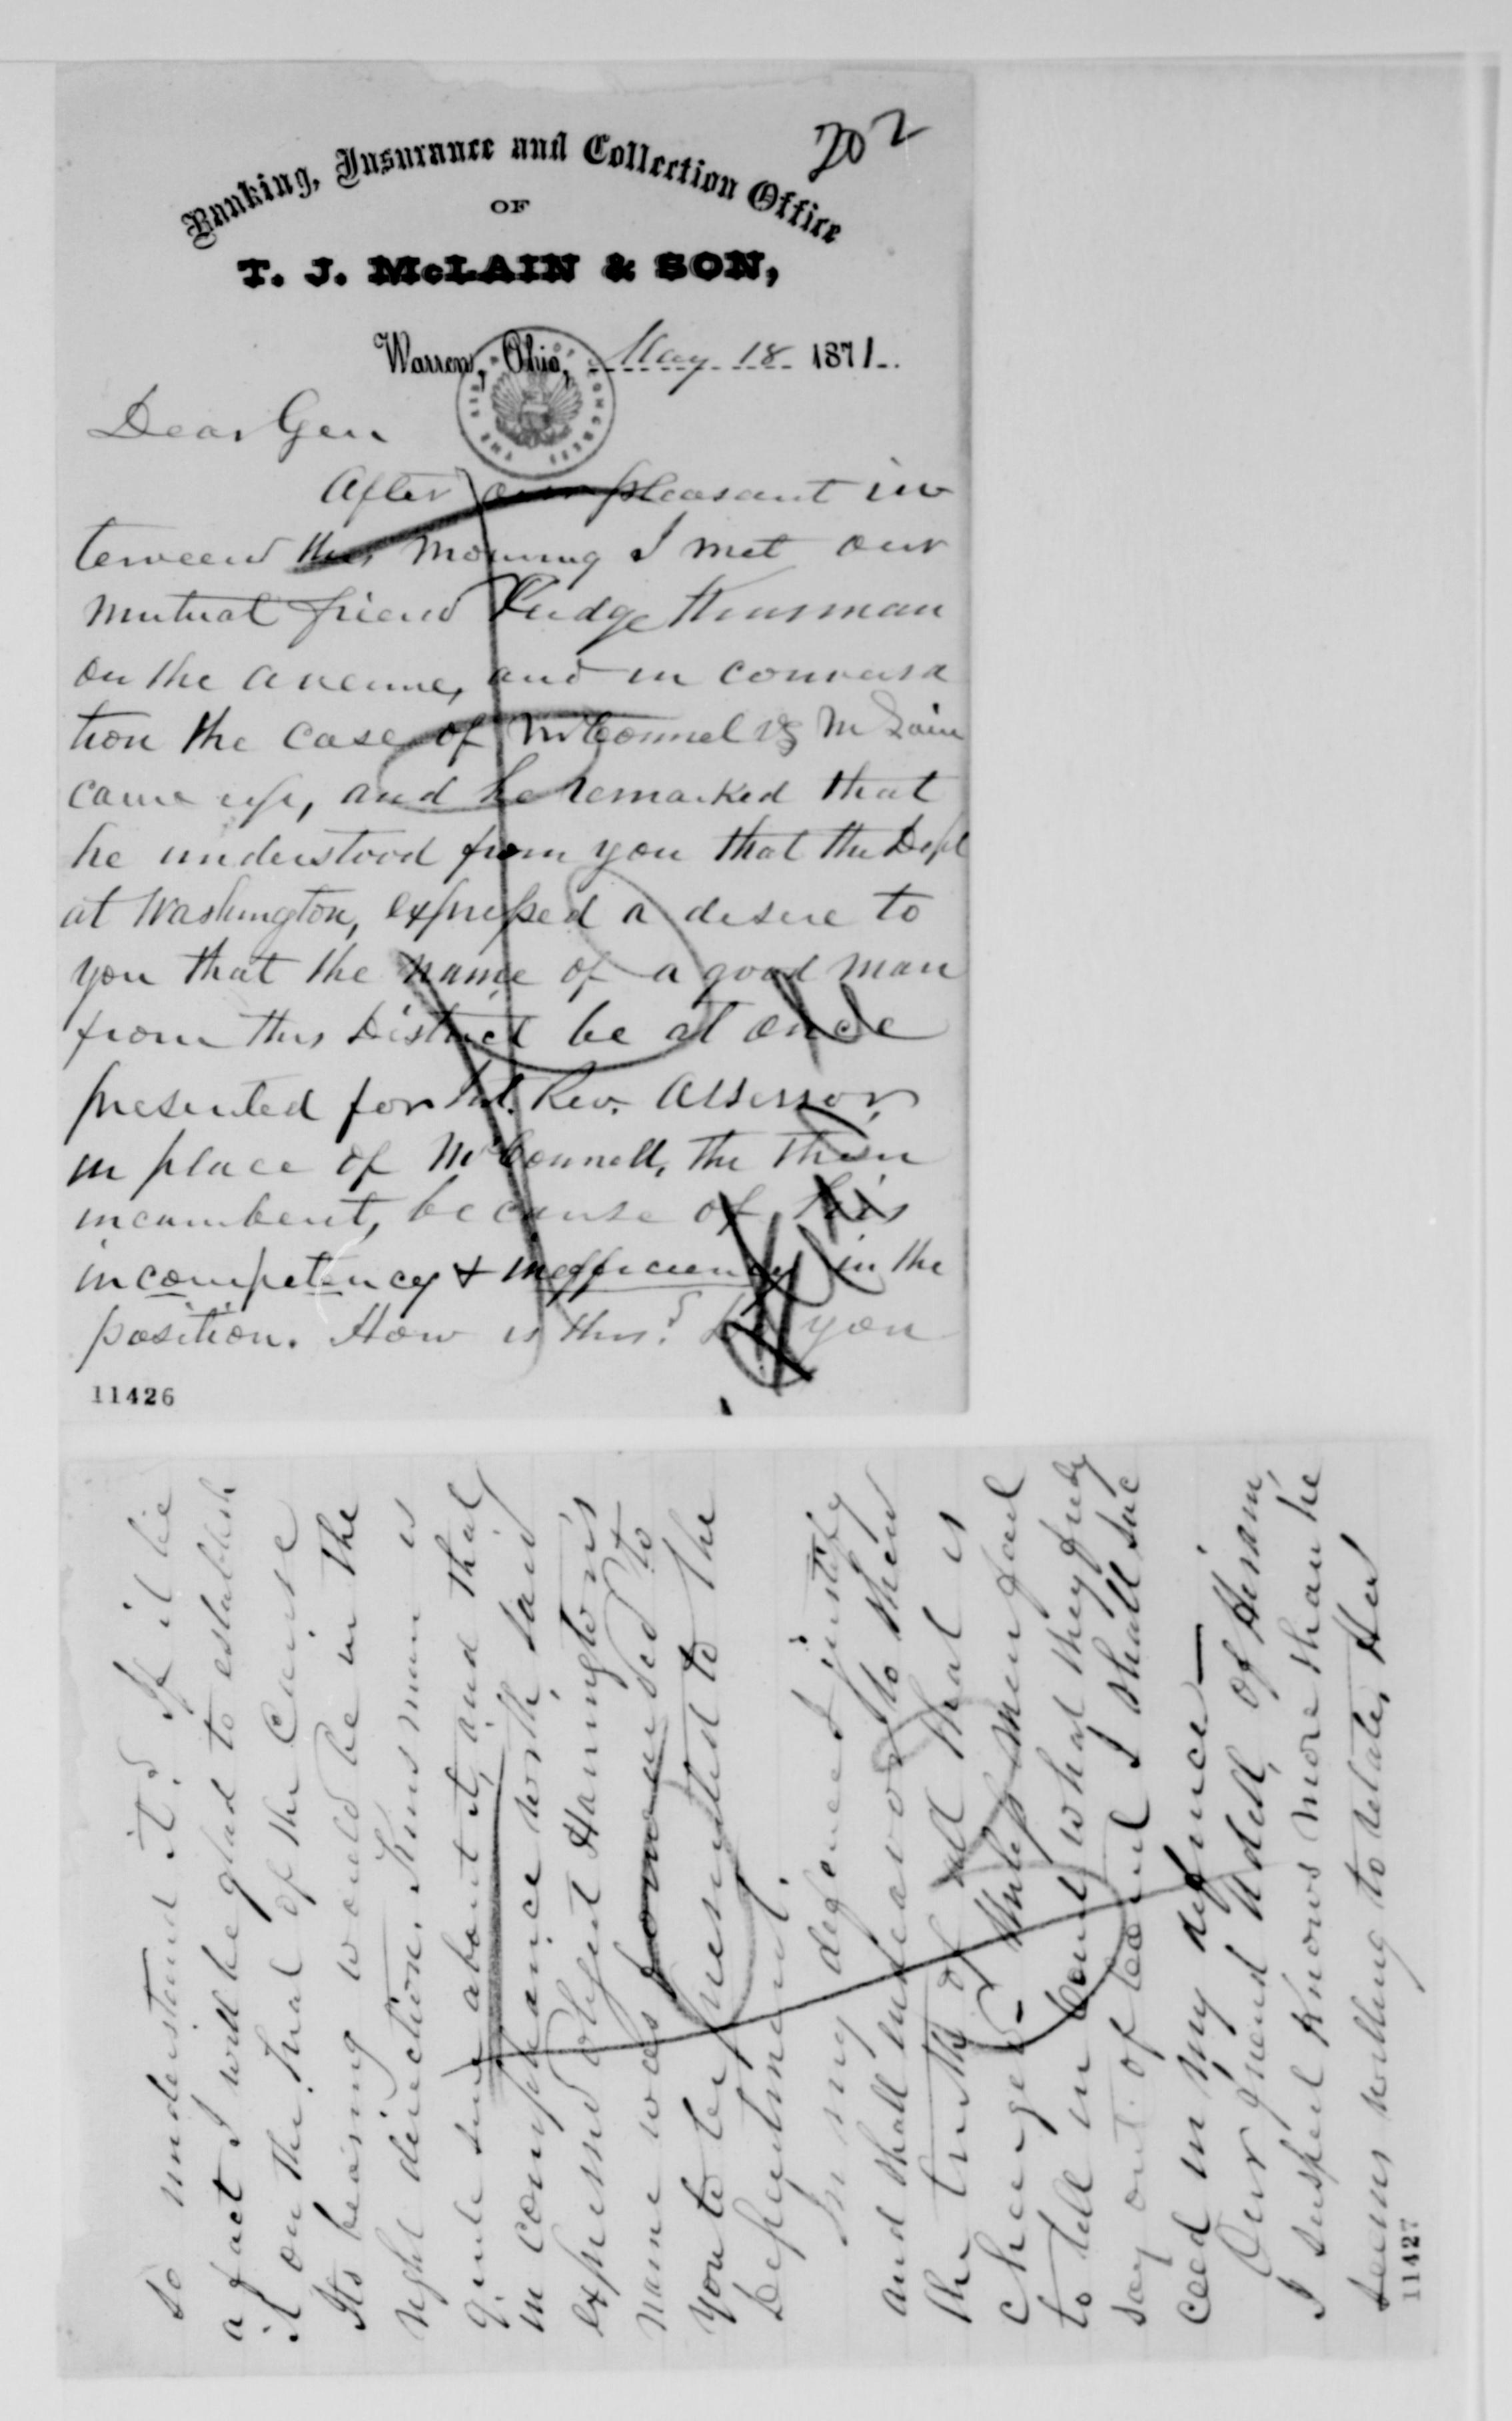 202
Banking, Insurance and Collection Office
OF
T. J. McLAIN & SON,
Warren, Ohio, May 18 1871.
Dear Gen
After our pleasant in
terveiw this morning I met our
mutual friend Judge Kinsman
on the avenue, and in conversa
tion the case of McConnel vs McLain
came up, and he remarked that
he understood from you that the Dept
at Washington, expressed a desire to
you that the name of a good man
from this District be at once
presented for Int. Rev. Assessor,
in place of McConnell, the then
incumbent, because of his
incompetency & inefficiency in the
position. How is this? Do you
11426
so understand it? If it be
a fact I will be glad to establish
it on the trial of the cause
Its bearing would be in the
right direction. Kinsman is
quite sure about it, and that
in compliance with said
expressed object Harringtons
name was forwarded to
you to be presented to the
Department.
In my defence I justify
and shall endeavor to shew
the truth of all that is
charged. Unless men fail
to tell in Court what they freely
say out of Court I shall suc
ceed in my defence—
Our friend Udell, of Hiram,
I suspect knows more than he
seems willing to relate, Her
11427